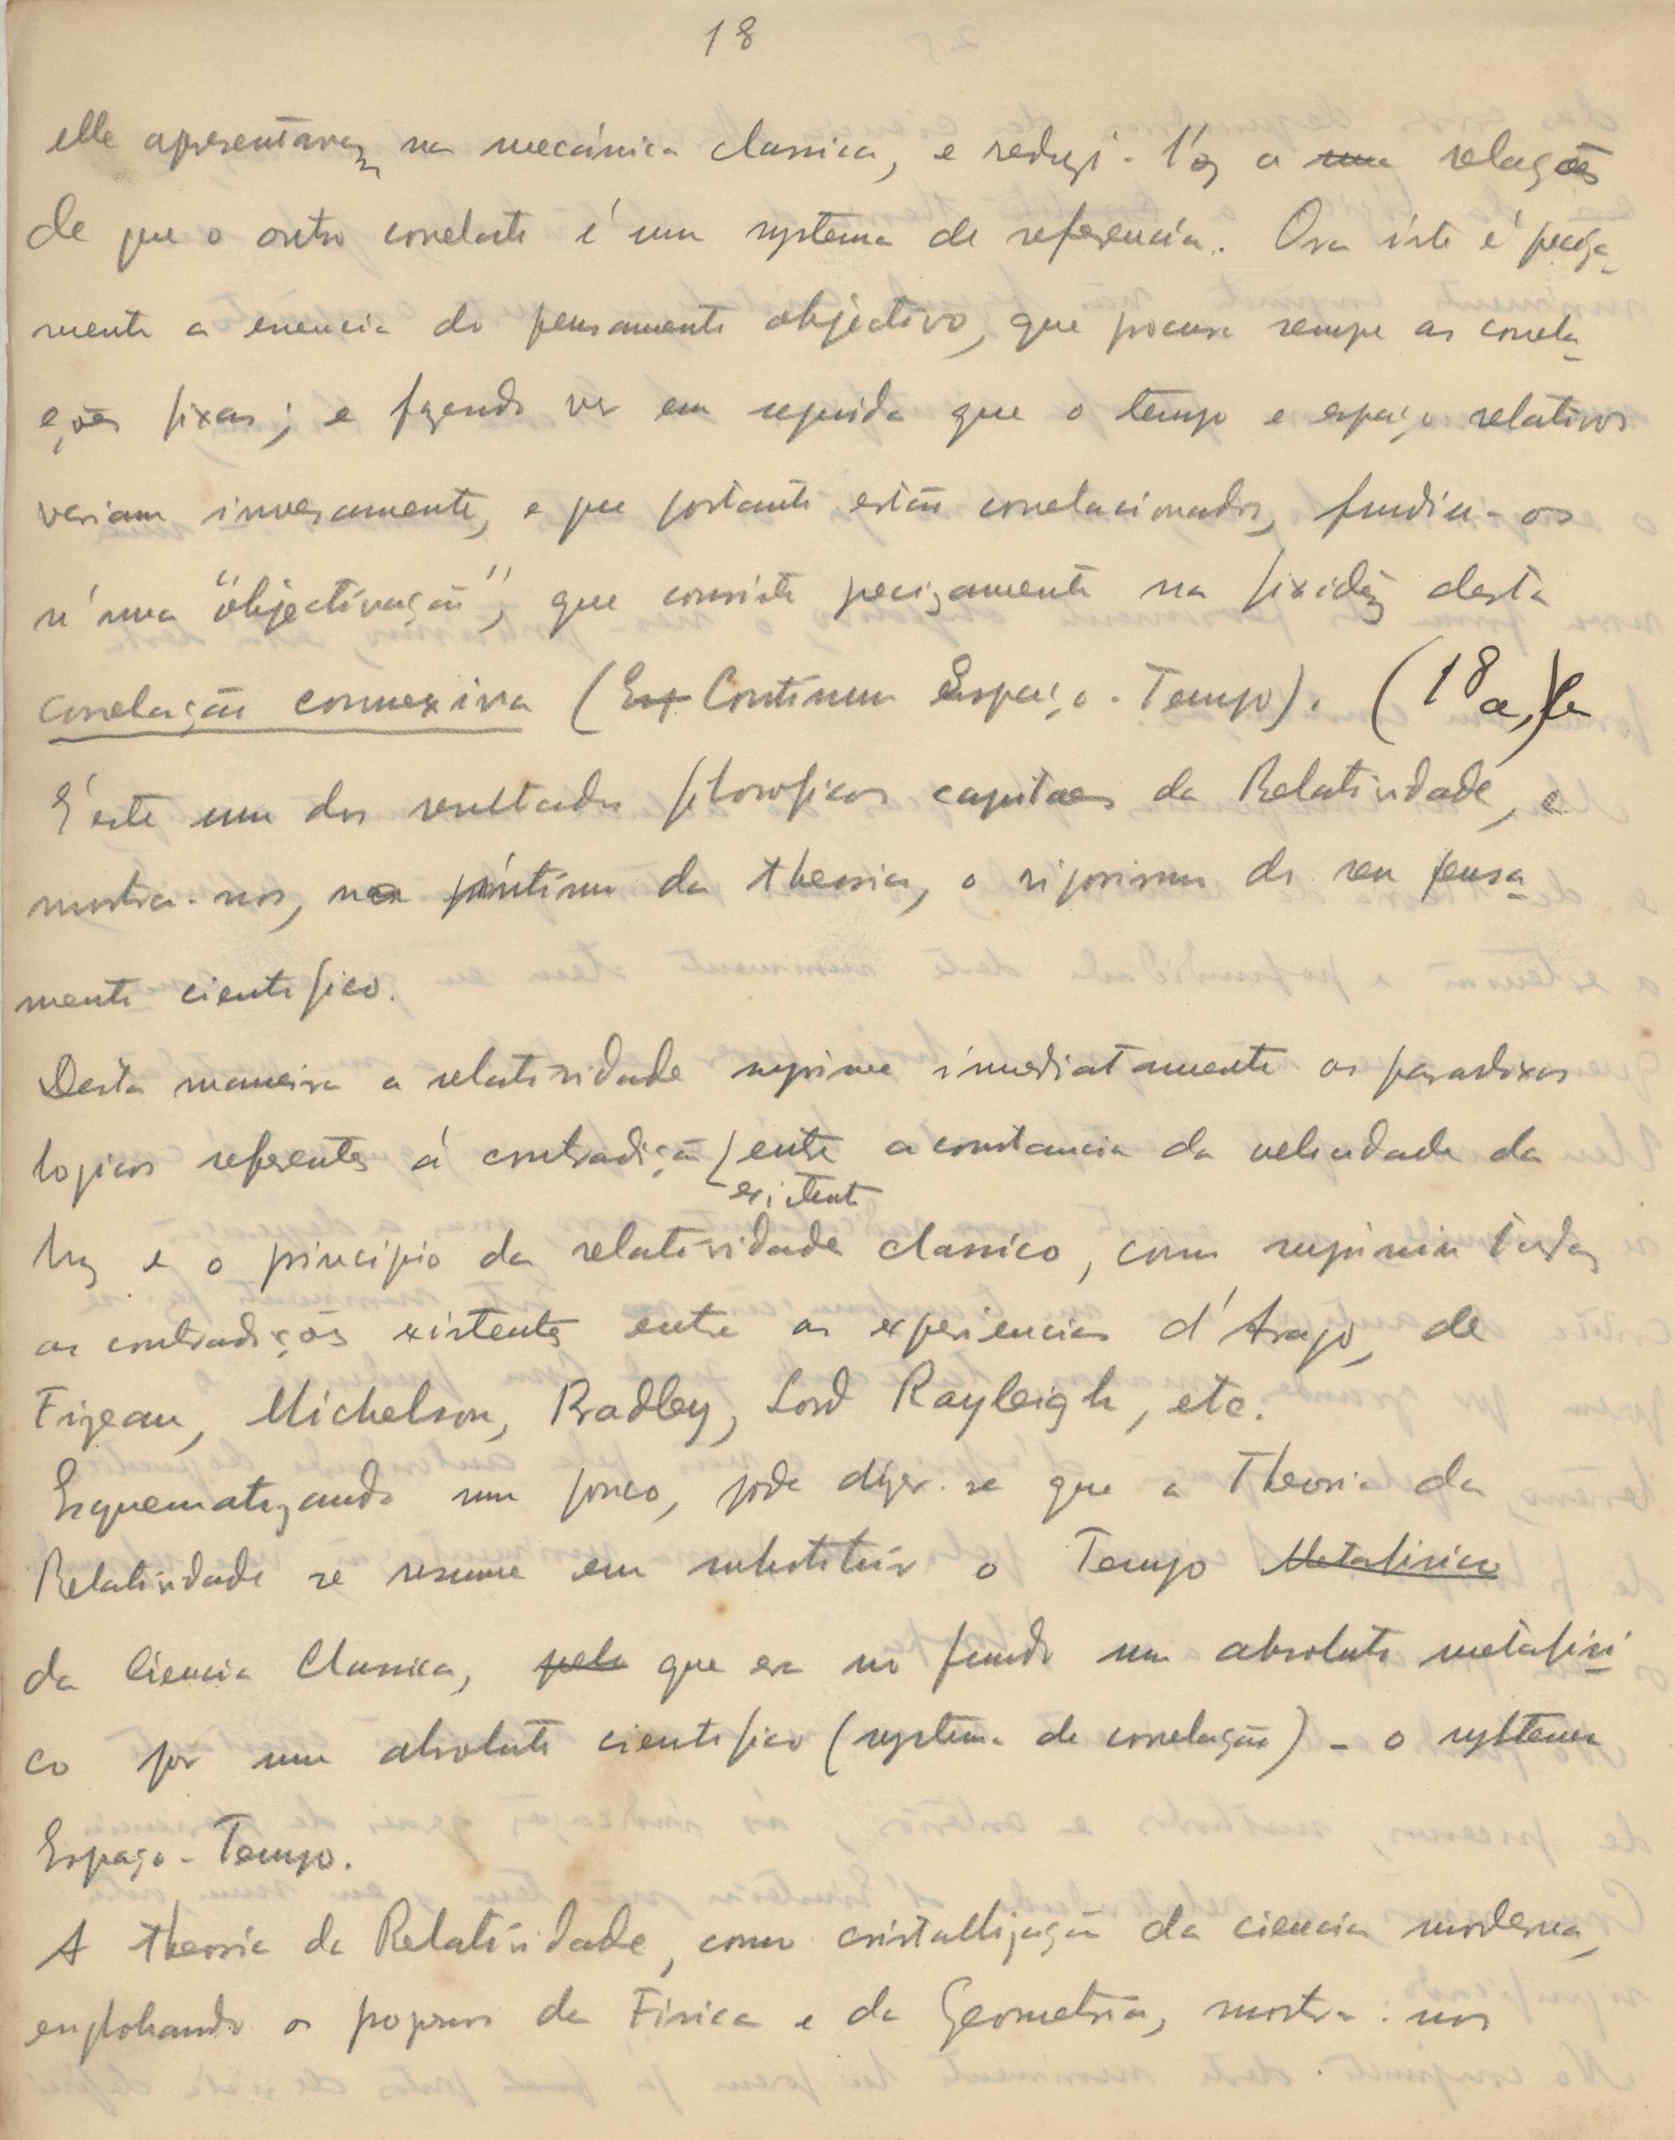 18
elle apresentavam na mecánica classica, e reduzi-l'os a uma relações
de que o outro correlato é um systema de referencia. Ora iste é preciza-
mente a essencia do pensamento objectivo, que procura sempre as correla-
ções fixas; e fazendo ver em seguida que o tempo e espaço relativos
variam inversamente, e que portanto estão correlacionados, fundiu-os
n'uma "objectivação", que consiste precizamente na fixidêz desta
correlação connexiva (Esp Continuu Espaço-Tempo). (18a,)
É este um dos resultados filosoficos capitaes da Relatividade, e
mostra-nos, no íntimo da theoria, o rigorismo do seu pensa-
mento cientifico.
Desta maneira a relatividade suprime imediatamente os paradoxos
logicos referentes á contradição entre a constancia da velocidade da
existente
luz e o principio da relatividade classico, como suprimiu todas
as contradições existentes entre as experiencias d'Arago, de
Fizeau, Michelson, Bradley, Lord Rayleigh, etc.
Esquematizando um pouco, póde dizer-se que a Theoria da
Relatividade se resume em substituir o Tempo Metafisico
da Ciencia Classica, pelo que era no fundo um absoluto metafisi-
co por um absoluto cientifico (systema de correlação) - o systema
Espaço-Tempo.
A theoria da Relatividade, como cristallização da ciencia moderna,
englobando os progressos da Fisica e da Geometria, mostra-nos